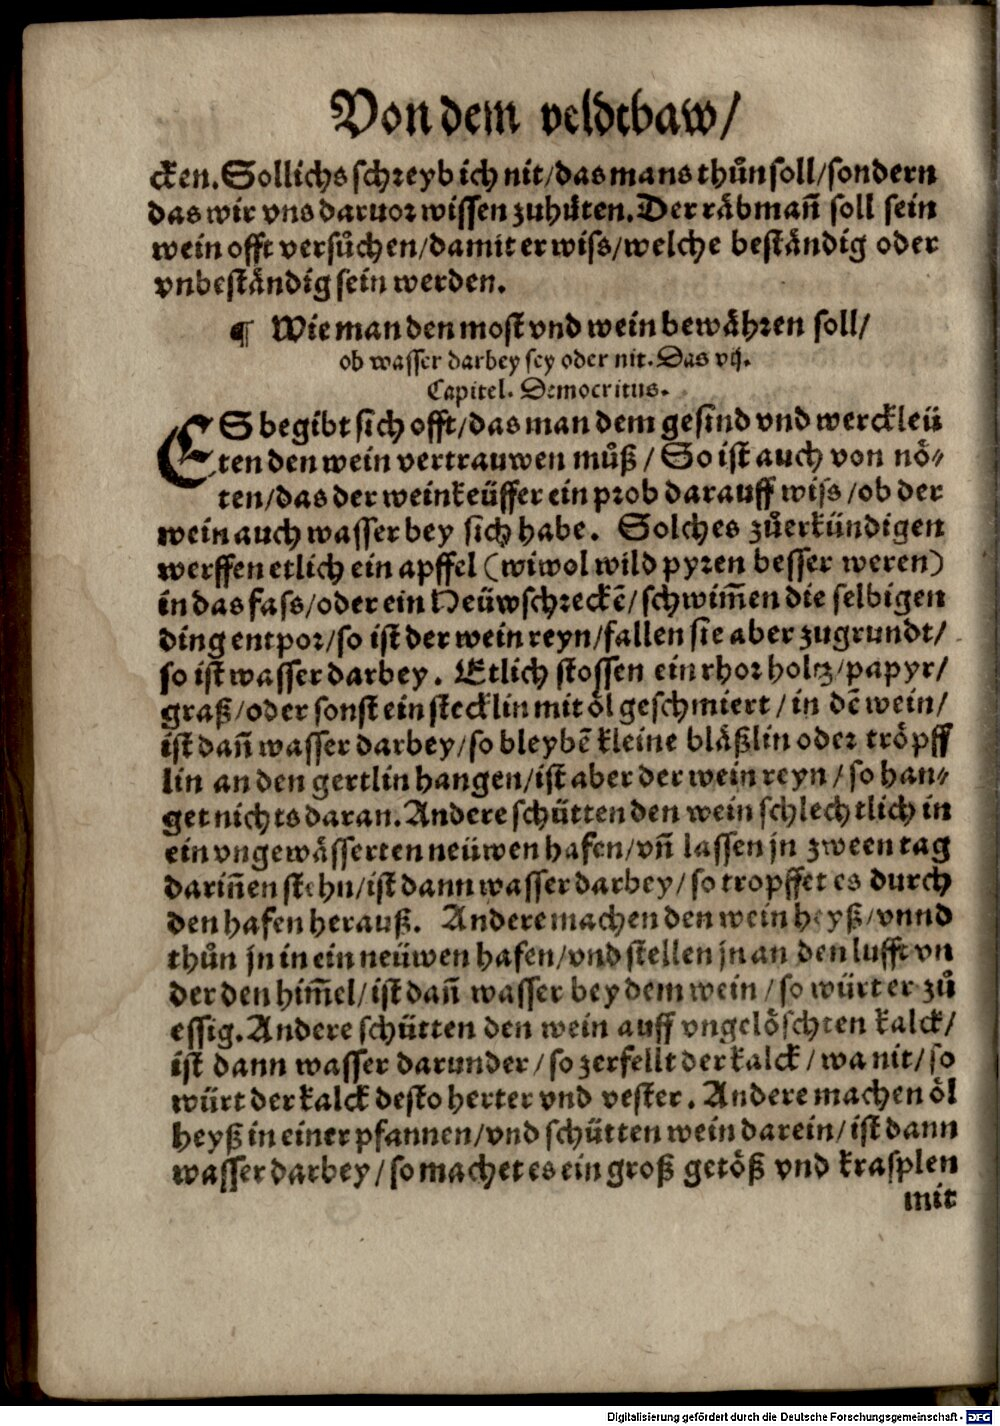 Von dem veldtbaw/
cken. Sollichs schreyb ich nit/das mans thůn soll/sondern
das wir vns daruor wissen zuhüten. Der räbmañ soll sein
wein offt versůchen/damit er wiss/welche beständig oder
vnbeständig sein werden.
¶ Wie man den most vnd wein bewähren soll/
ob wasser darbey sey oder nit. Das vij.
Capitel. Democritus.
ES begibt sich offt/das man dem gesind vnd werckleü
ten den wein vertrauwen můß/ So ist auch von nö-
ten/das der weinkeüffer ein prob darauff wiss/ob der
wein auch wasser bey sich habe. Solches zůerkündigen
werffen etlich ein apffel (wiwol wild pyren besser weren)
in das fass/oder ein Heüwschreckē/schwim̄en die selbigen
ding entpor/so ist der wein reyn/fallen sie aber zugrundt/
so ist wasser darbey. Etlich stossen ein rhor holtz/papyr/
graß/oder sonst ein stecklin mit öl geschmiert/in dē wein/
ist dañ wasser darbey/so bleybē kleine bläßlin oder tröpff
lin an den gertlin hangen/ist aber der wein reyn/so han-
get nichts daran. Andere schütten den wein schlechtlich in
ein vngewässerten neüwen hafen/vñ lassen jn zween tag
dariñen stehn/ist dann wasser darbey/so tropffet es durch
den hafen herauß. Andere machen den wein heyß/vnnd
thůn jn in ein neüwen hafen/vnd stellen jn an den lufft vn
der den him̄el/ist dañ wasser bey dem wein/so würt er zů
essig. Andere schütten den wein auff vngelöschten kalck/
ist dann wasser darunder/so zerfellt der kalck/wa nit/so
würt der kalck desto herter vnd vester. Andere machen öl
heyß in einer pfannen/vnd schütten wein darein/ist dann
wasser darbey/so machet es ein groß getöß vnd krasplen
mit
Digitalisierung gefördert durch die Deutsche Forschungsgemeinschaft - DFG